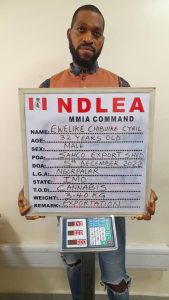 NDLEA
MMIA COMMAND
NAME: EWELIKE CHIBUIKE CYRIL
AGE: 32 YEARS OLD
SEX: MALE
POA: SAHCO EXPORT SHED
DOA: DECEMBER 2022
L.G.A:
STATE: IMO
T.O.D: CANNABIS
WEIGHT:
REMARK: EXPORTATION